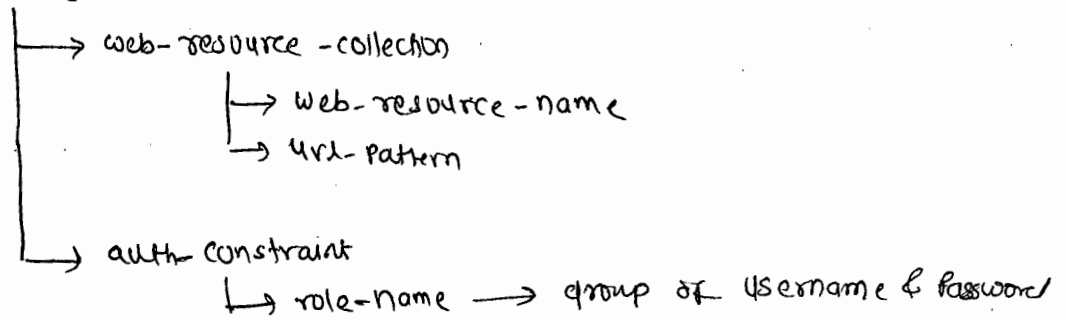 web-resource-collection
web-resource-name
url-pattern
auth-constraint
role-name → group of username & Password